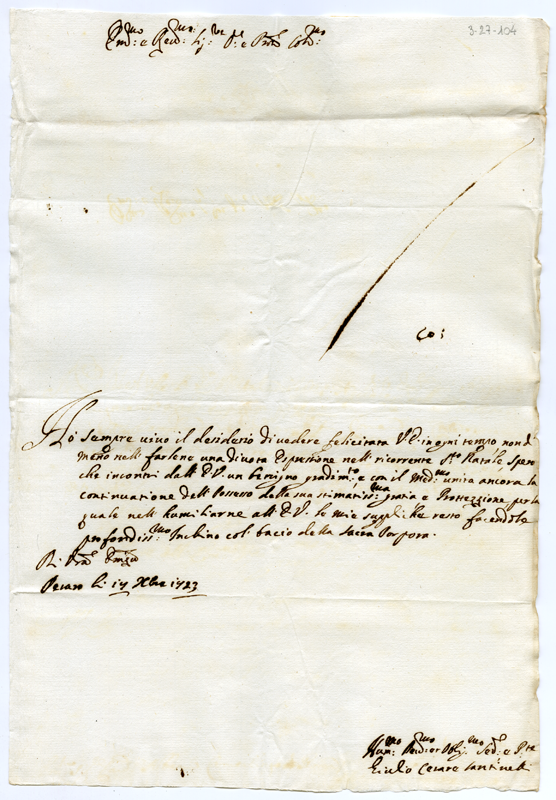 3-27-104
Em:mo e Rev:mo Sig:re P:e e Pron Col:mo
60:
Hò sempre vivo il desiderio di vedere felicitata V.E. in ogni tempo non d.
meno nell farlene una divota Espressione nell ricorrente S:to Natale, Spero
che incontri dall E.V. un benigno gradim:to, e con il med:mo unirà ancora la
continuatione dell Possesso della sua stimatiss:ma gratia e Protezzione per la
quale nell humiliarne all E.V. le mie suppliche resto facendole
profondiss:mo Inchino col bacio della Sacra Porpora.
Pesaro li 17 Xbre 1723
Hum:mo Dev:mo et Obl:mo Ser:e
Giulio Cesare Santinelli